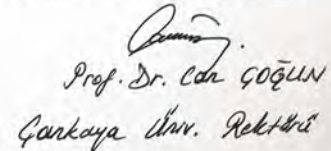 Prof. Dr. Can ÇOĞUN
Çankaya Üniv. Rektörü